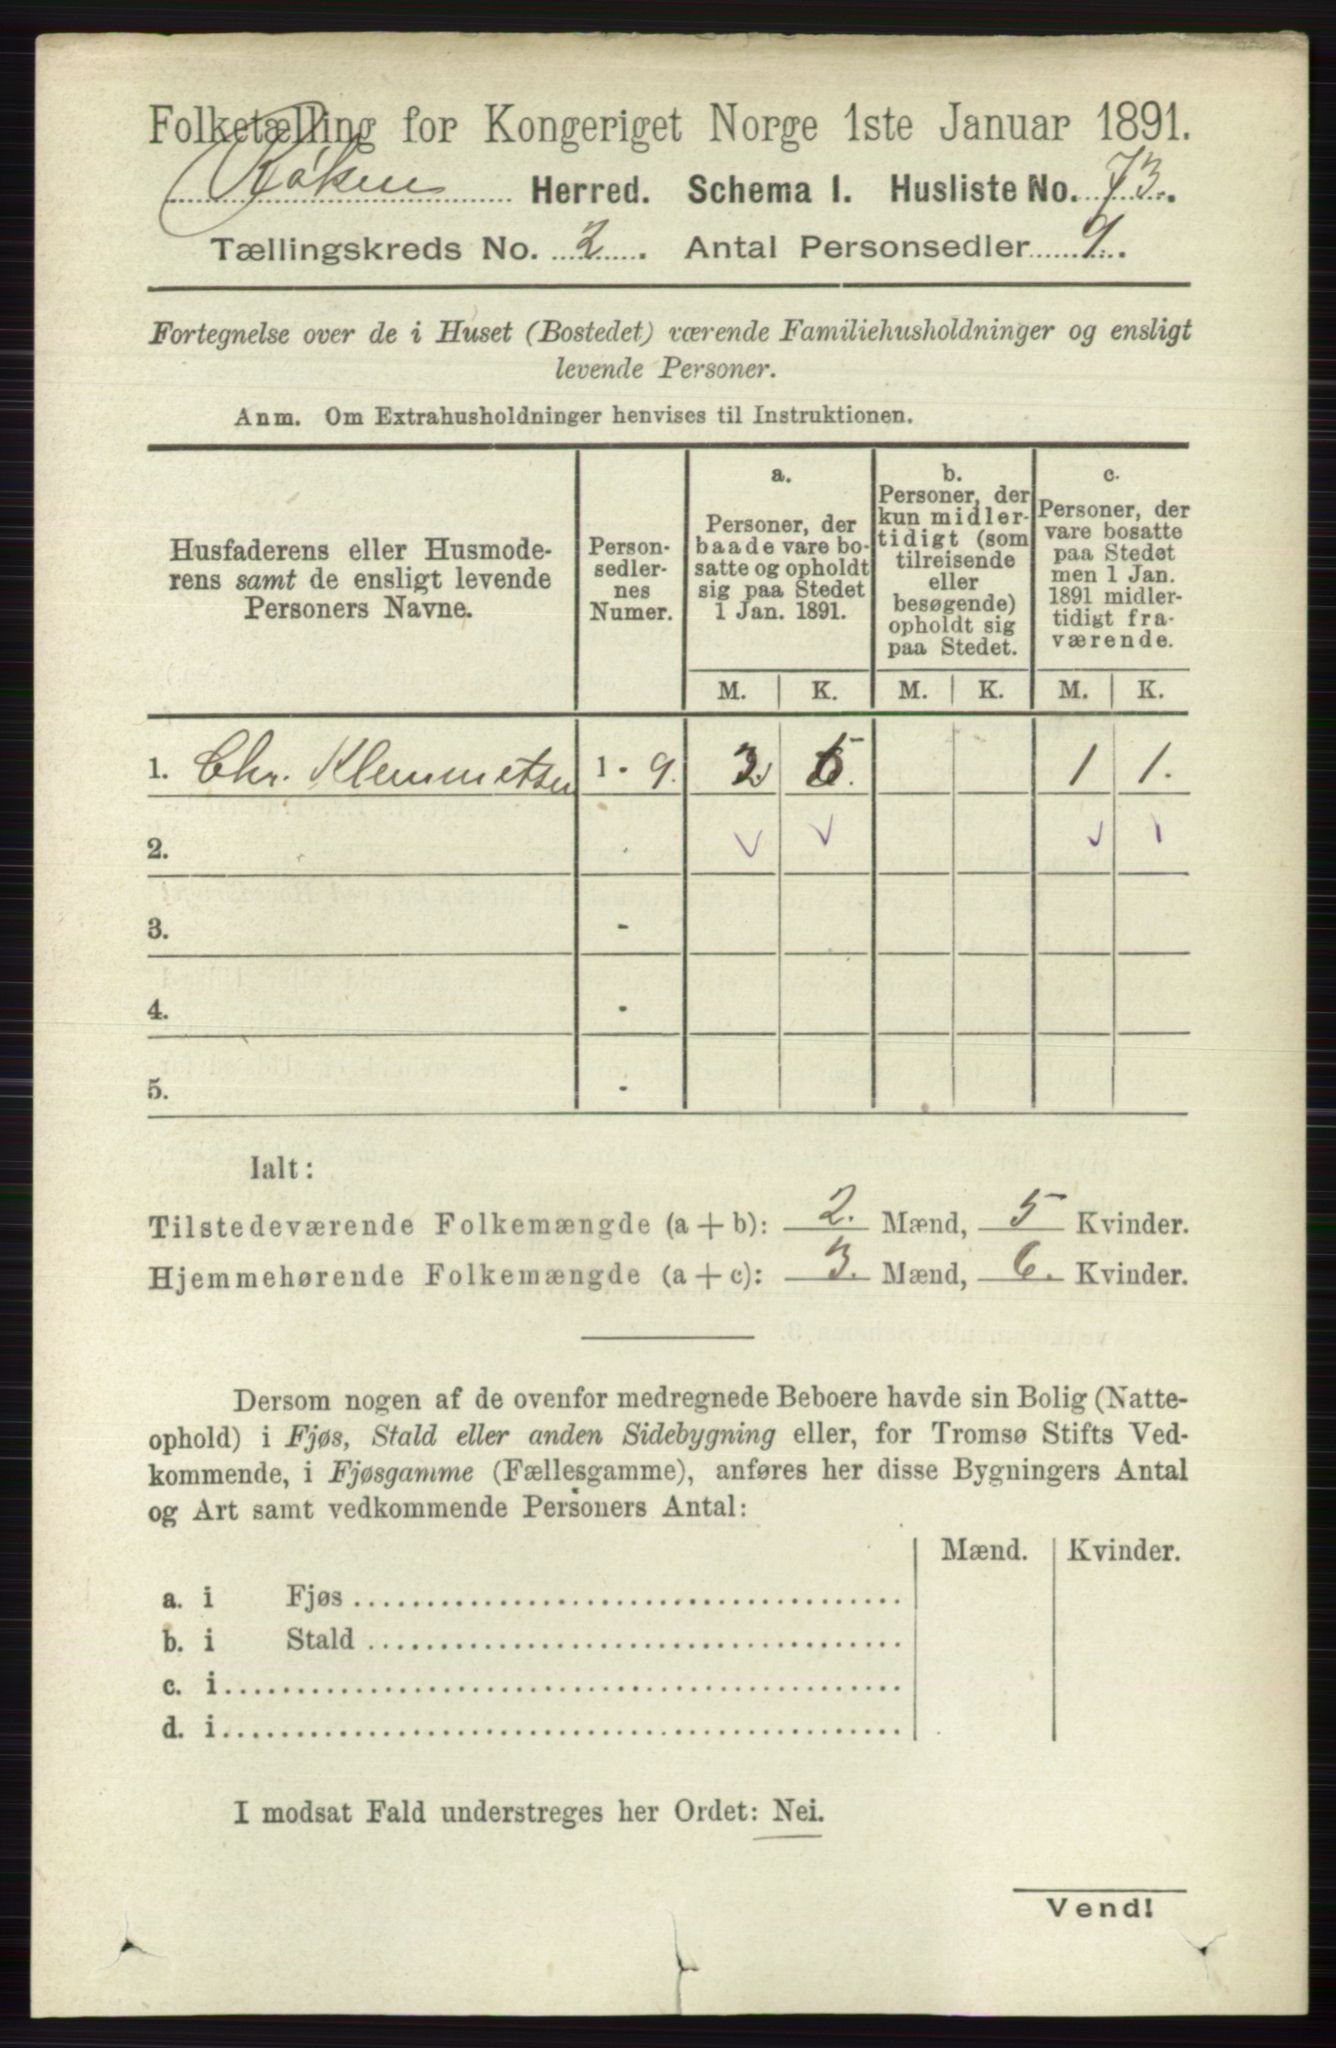 Folketælling for Kongeriget Norge 1ste Januar 1891.
Røken Herred. Schema 1. Husliste No. 73.
Tællingskreds No. 2. Antal Personsedler 9.
Fortegnelse over de i Huset (Bostedet) værende Familiehusholdninger og ensligt
levende Personer.
Anm. Om Extrahusholdninger henvises til Instruktionen.
Husfaderens eller Husmode-
rens samt de ensligt levende
Personers Navne.
Person-
sedler-
nes
Numer.
a.
Personer, der
baade vare bo-
satte og opholdt
sig paa Stedet
1 Jan. 1891.
b.
Personer, der
kun midler-
tidigt (som
tilreisende
eller
besøgende)
opholdt sig
paa Stedet.
c.
Personer, der
vare bosatte
paa Stedet
men 1 Jan.
1891 midler-
tidigt fra-
værende.
M. K. M. K. M. K.
1. Chr. Klemmetsen 1 - 9. 2 5. 1 1.
2.
3. -
4. -
5. -
Ialt:
Tilstedeværende Folkemængde (a + b): 2. Mænd, 5 Kvinder.
Hjemmehørende Folkemængde (a + c): 3. Mænd, 6. Kvinder.
Dersom nogen af de ovenfor medregnede Beboere havde sin Bolig (Natte-
ophold) i Fjøs, Stald eller anden Sidebygning eller, for Tromsø Stifts Ved-
kommende, i Fjøsgamme (Fællesgamme), anføres her disse Bygningers Antal
og Art samt vedkommende Personers Antal:
Mænd. Kvinder.
a. i Fjøs
b. i Stald
c. i
d. i
I modsat Fald understreges her Ordet: Nei.
Vend!